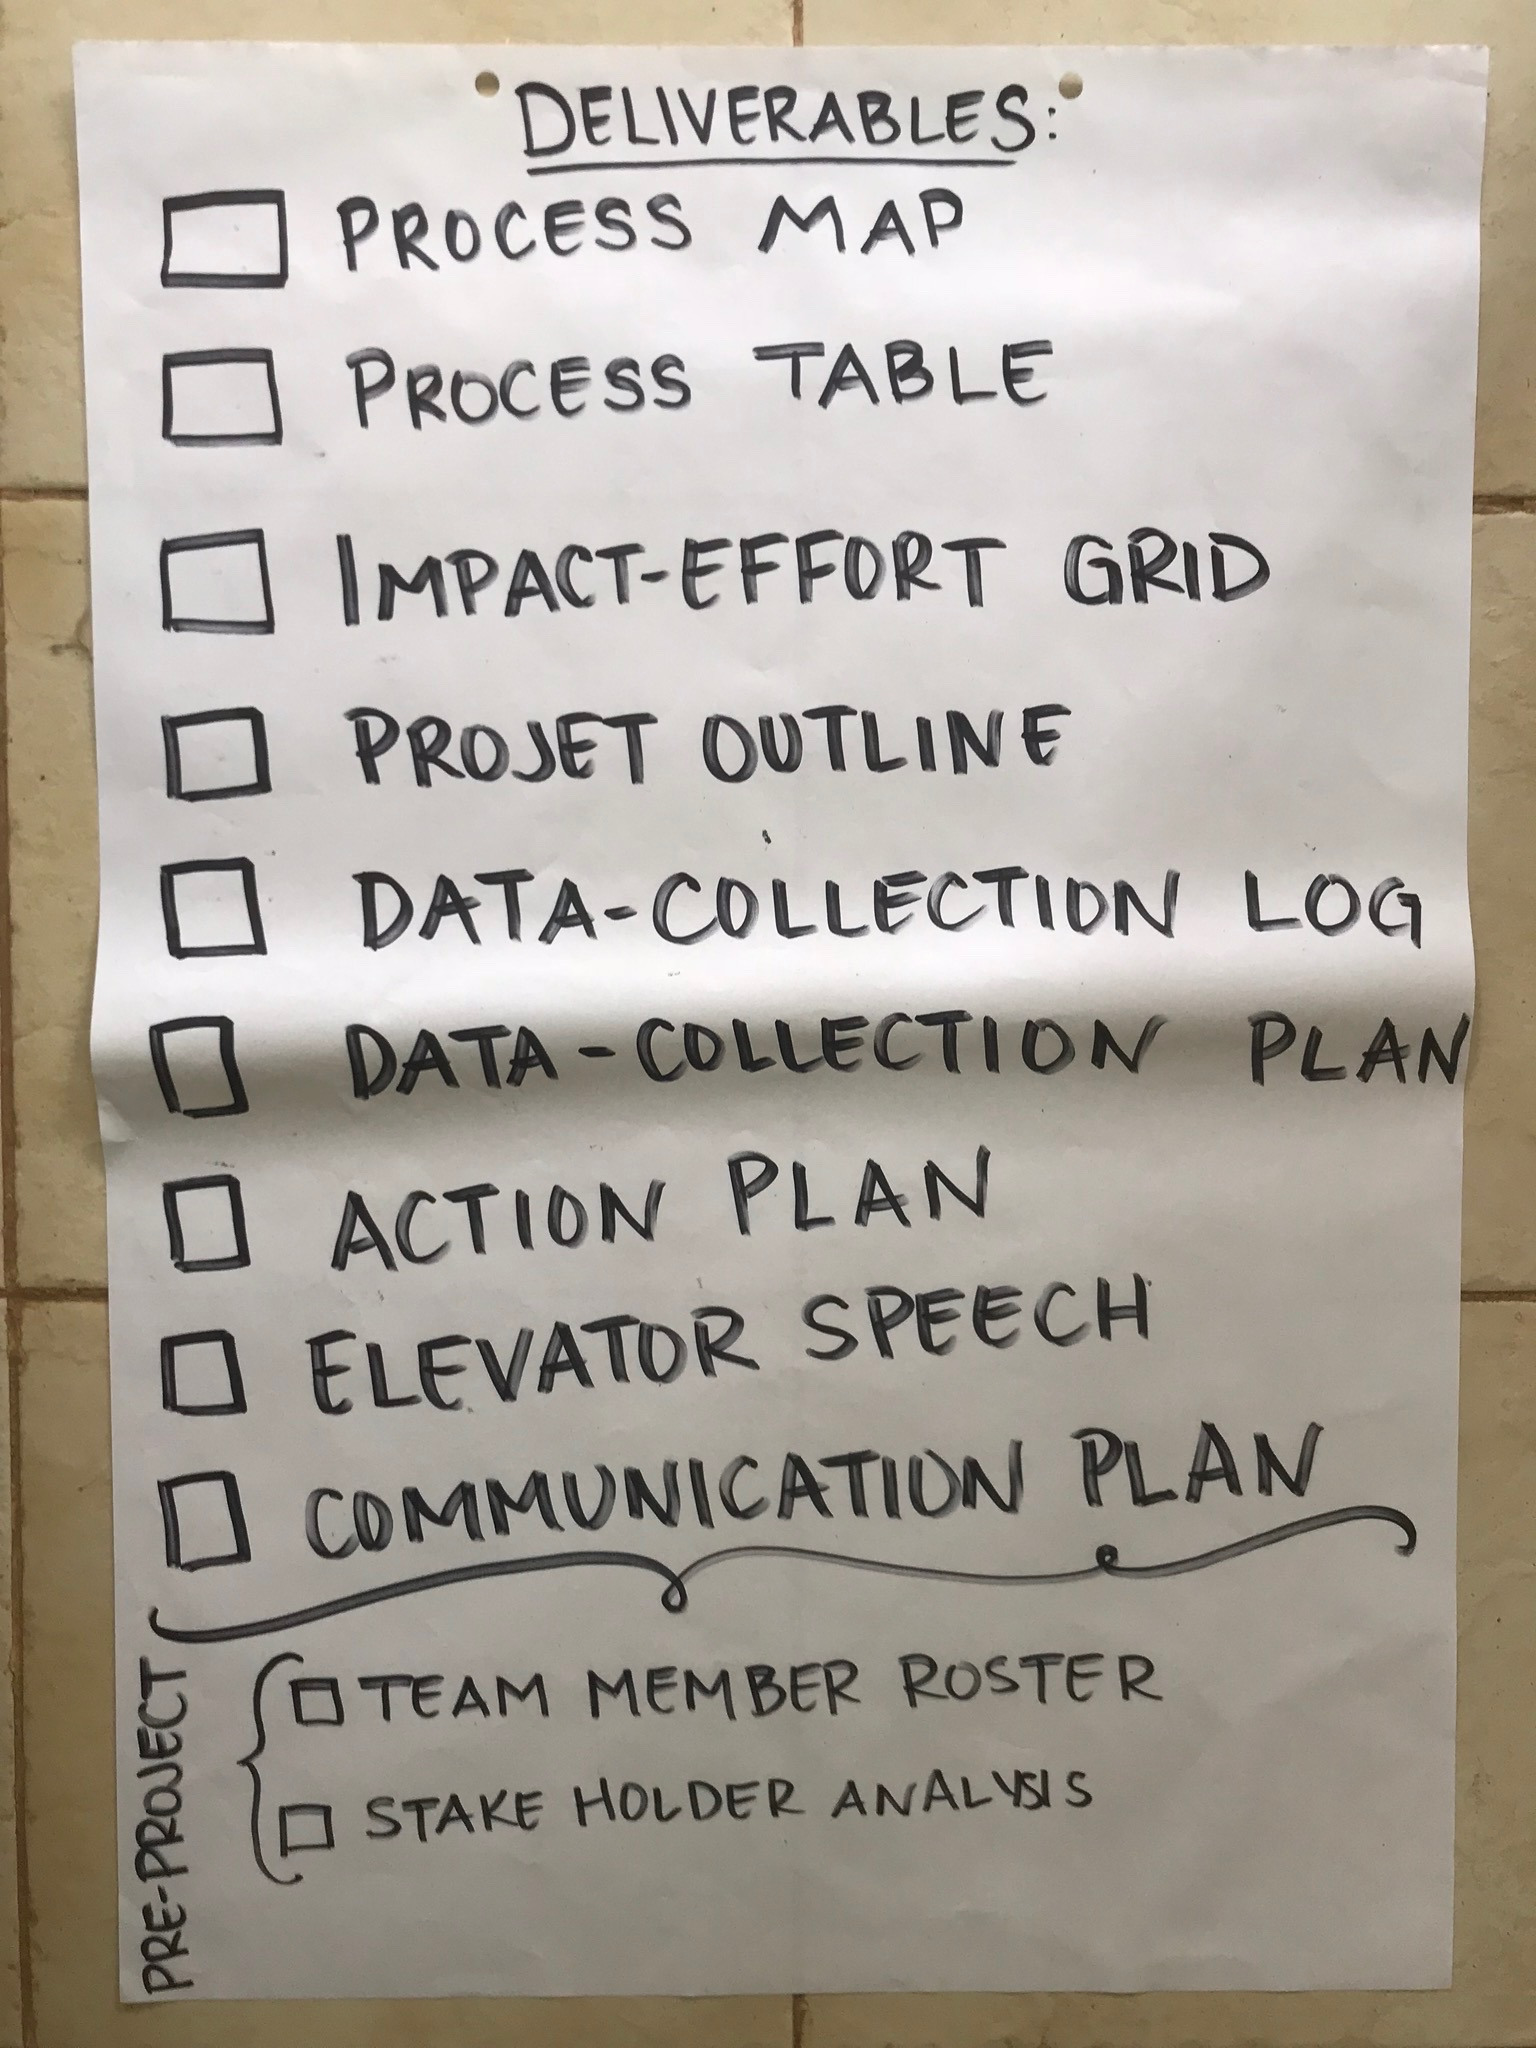 DELIVERABLES:
PROCESS MAP
PROCESS TABLE
IMPACT-EFFORT GRID
PROJET OUTLINE
DATA-COLLECTION LOG
DATA-COLLECTION PLAN
ACTION PLAN
ELEVATOR SPEECH
COMMUNICATION PLAN
PRE-PROJECT
TEAM MEMBER ROSTER
STAKE HOLDER ANALYSIS